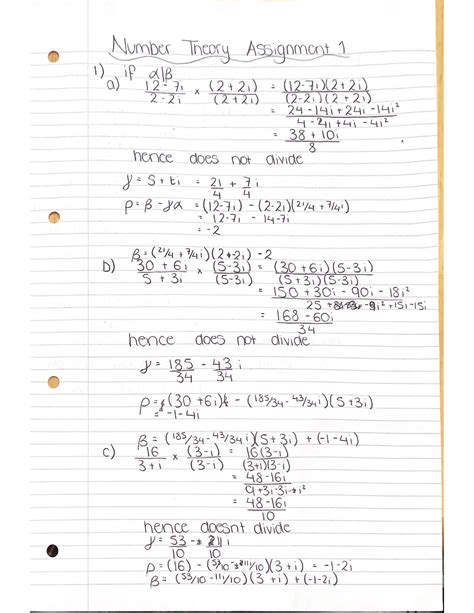 Number Theory Assignment 1
1) if α|β
a) 12-7i/2-2i × (2+2i)/(2+2i) = (12-7i)(2+2i)/(2-2i)(2+2i)
= 24-14i+24i-14i²/4-4i+4i-4i²
= 38+10i/8
hence does not divide
γ = S+ti = 21/4 + 7/4 i
ρ = β-γα = (12-7i) - (2-2i)(21/4 + 7/4i)
= 12-7i - 14-7i
= -2
β = (21/4 + 7/4i)(2-2i) - 2
b) 30+6i/5+3i × (5-3i)/(5-3i) = (30+6i)(5-3i)/(5+3i)(5-3i)
= 150+30i-90i-18i²/25 -9i²+15i-15i
= 168-60i/34
hence does not divide
γ = 185/34 - 43/34 i
ρ = (30+6i) - (185/34 - 43/34i)(5+3i)
= -1-4i
β = (185/34 - 43/34 i)(5+3i) + (-1-4i)
c) 16/3+i × (3-i)/(3-i) = 16(3-i)/(3+i)(3-i)
= 48-16i/9+3i-3i-i²
= 48-16i/10
hence doesnt divide
γ = 53/10 - 11/10 i
ρ = (16) - (53/10 - 11/10i)(3+i) = -1-2i
β = (53/10 - 11/10)(3+i) + (-1-2i)